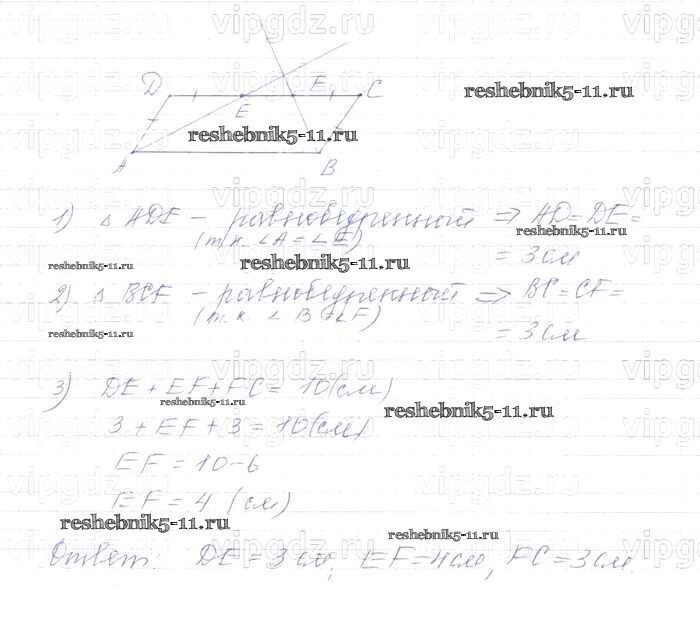 vipgdz.ru vipgdz.ru vipgdz.ru
D E F C
reshebnik5-11.ru
reshebnik5-11.ru
A B
1) △ ADE - равнобедренный => AD = DE =
(т.к ∠A = ∠E)
reshebnik5-11.ru
= 3 см
reshebnik5-11.ru
reshebnik5-11.ru
2) △ BCF - равнобедренный => BC = CF =
(т.к ∠B = ∠F)
reshebnik5-11.ru
= 3 см
3) DE + EF + FC = 10 (см)
reshebnik5-11.ru
reshebnik5-11.ru
3 + EF + 3 = 10 (см)
EF = 10 - 6
EF = 4 (см)
reshebnik5-11.ru
reshebnik5-11.ru
Ответ: DE = 3 см, EF = 4 см, FC = 3 см.